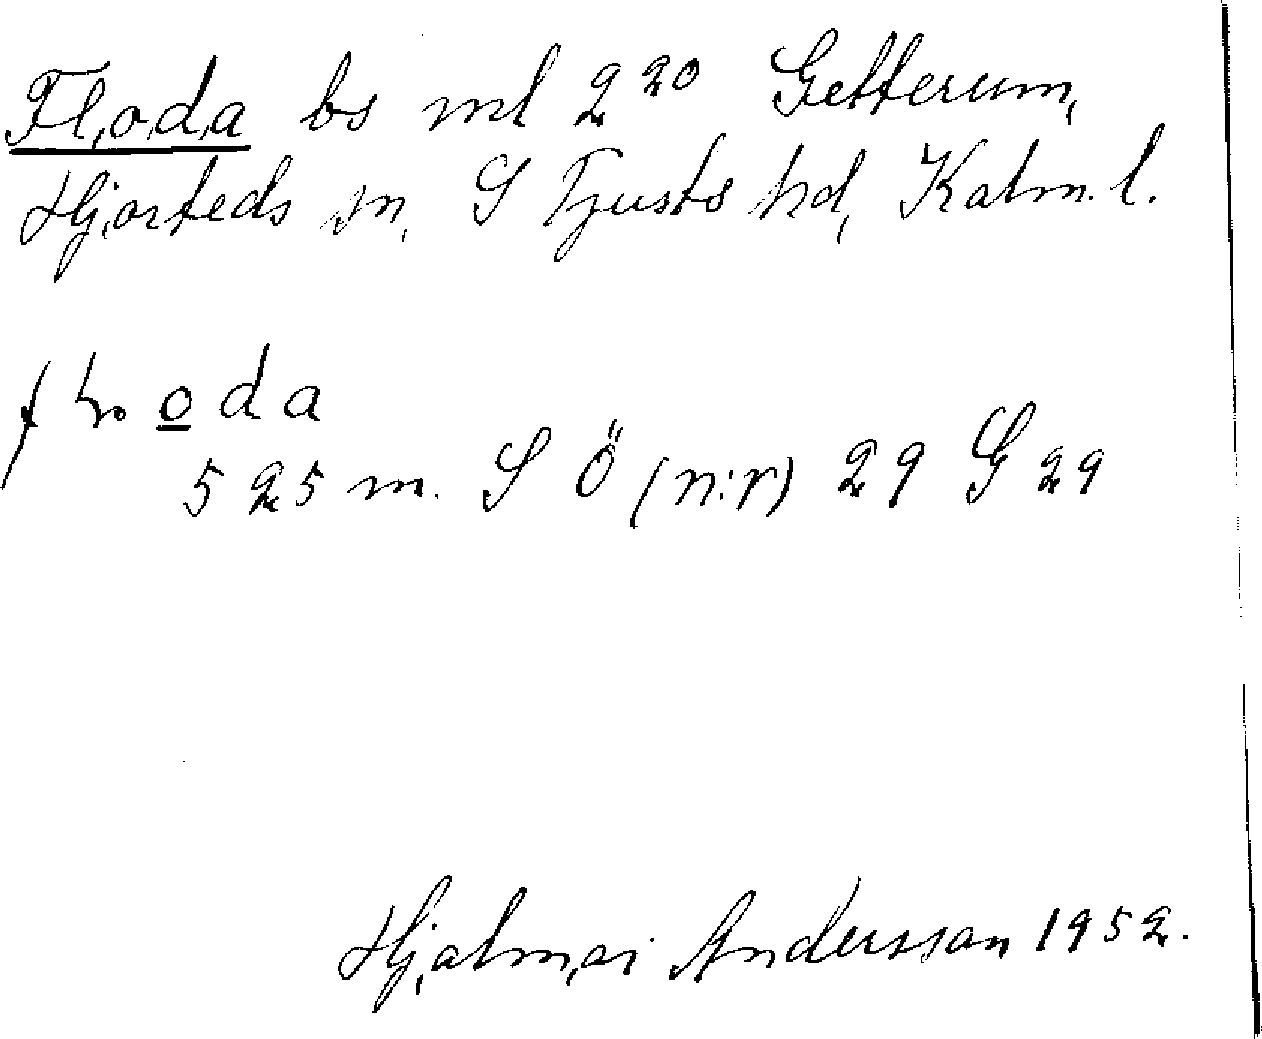 Floda bs ml 2²⁰ Getterum,
Hjorteds sn, S Tjusts hd, Kalm. l.
oda
525 m. S Ö (n:r) 29 G 29
Hjalmar Andersson 1952.